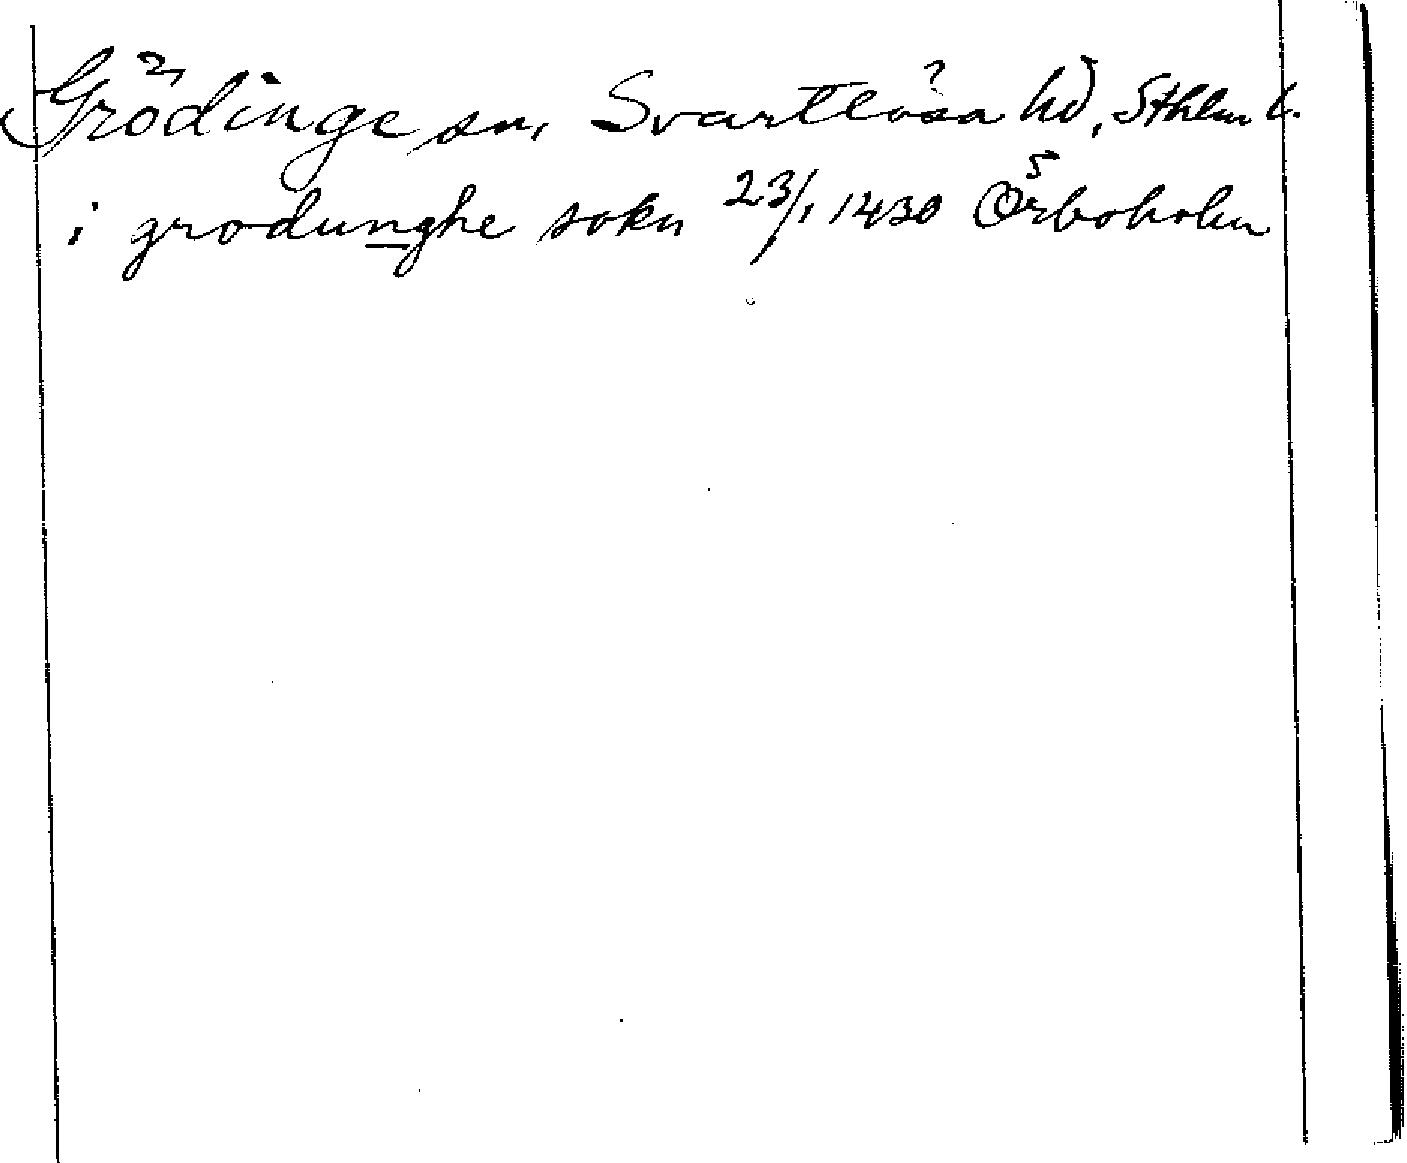 Grödinge sn, Svartlösa hd, Sthlm l.
i grodunghe sokn 23/1 1430 Örboholm